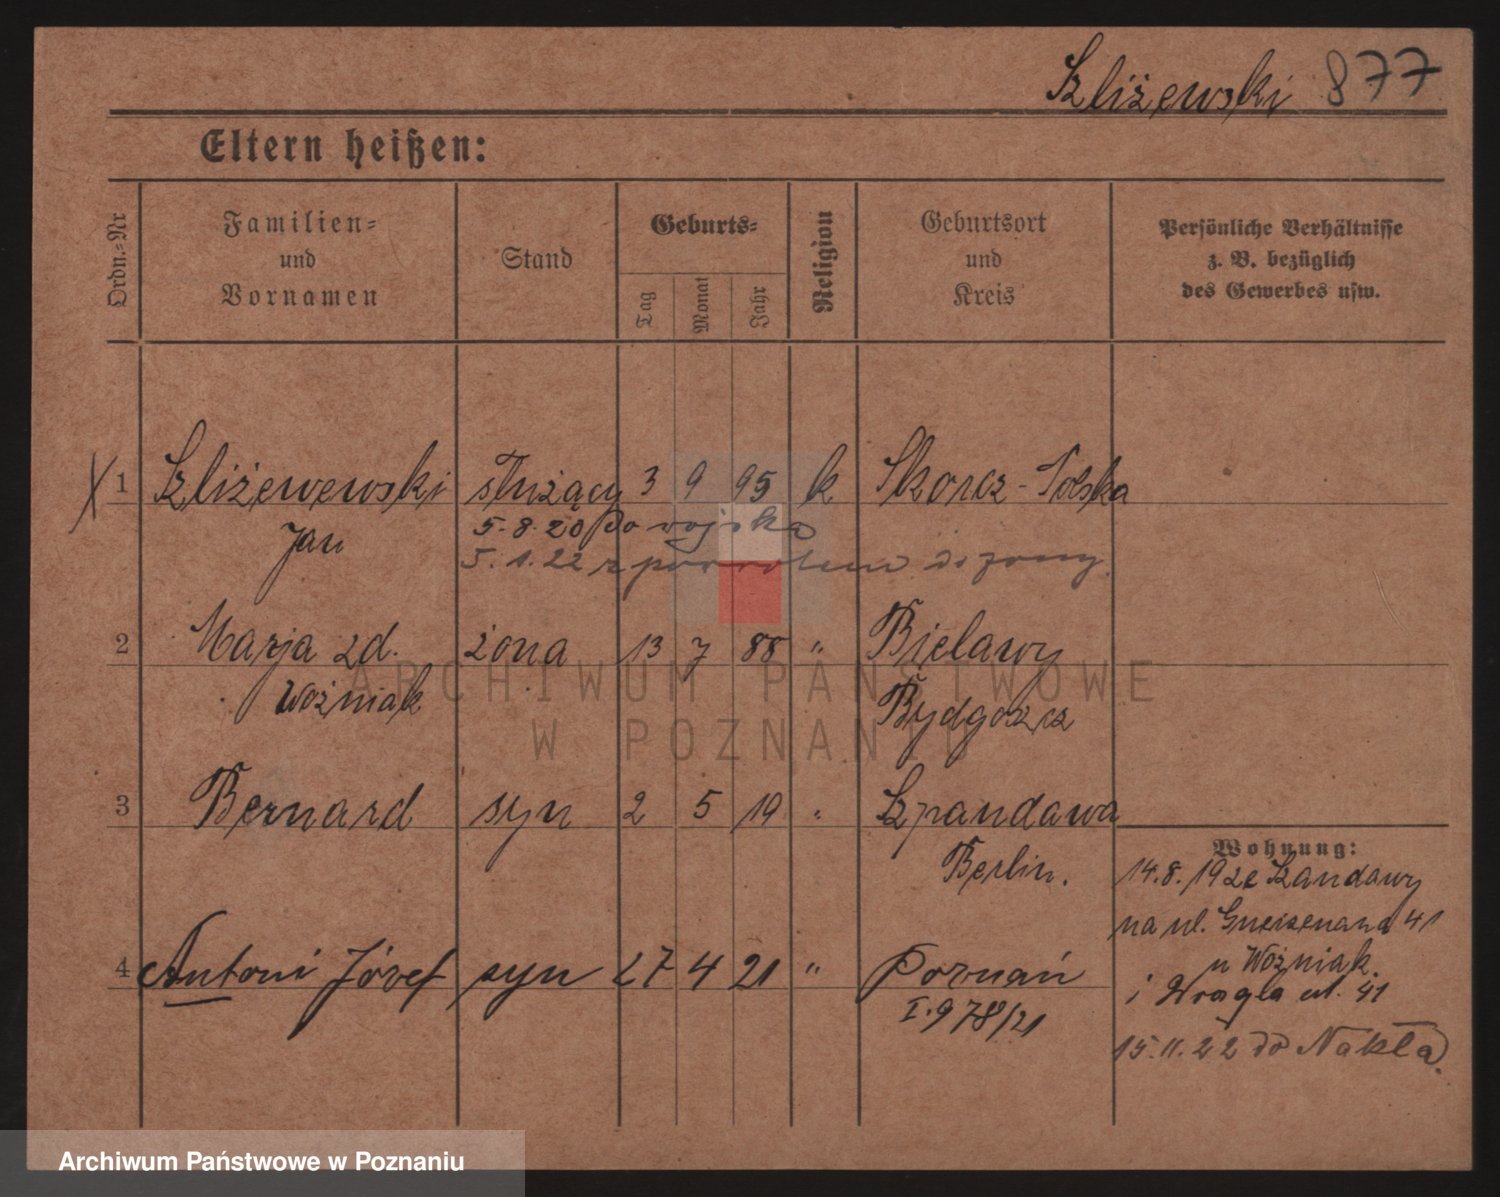 Szliżewski 877
Eltern heißen:
Ordn.=Nr
Familien=
und
Vornamen
Stand
Geburts=
Tag
Monat
Jahr
Religion
Geburtsort
und
Kreis
Persönliche Verhältnisse
z. B. bezüglich
des Gewerbes usw.
X 1 Szliżewewski służący 3 9 95 k Skorcz - Polska
Jan 5.8.20 do wojska
5.1.22 z powrotem do żony.
2 Marja zd. żona 13 7 88 " Bielawy
Woźniak Bydgoszcz
3 Bernard syn 2 5 19 " Szpandawa
Berlin.
4 Antoni Józef syn 27 4 21 " Poznań
I. 978/21
Wohnung:
14.8.192 Szandawy
na ul. Gneisenana 41
u Woźniak.
i ul. 41
15.11.22 do Nakła.
ARCHIWUM PAŃSTWOWE
W POZNANIU
Archiwum Państwowe w Poznaniu